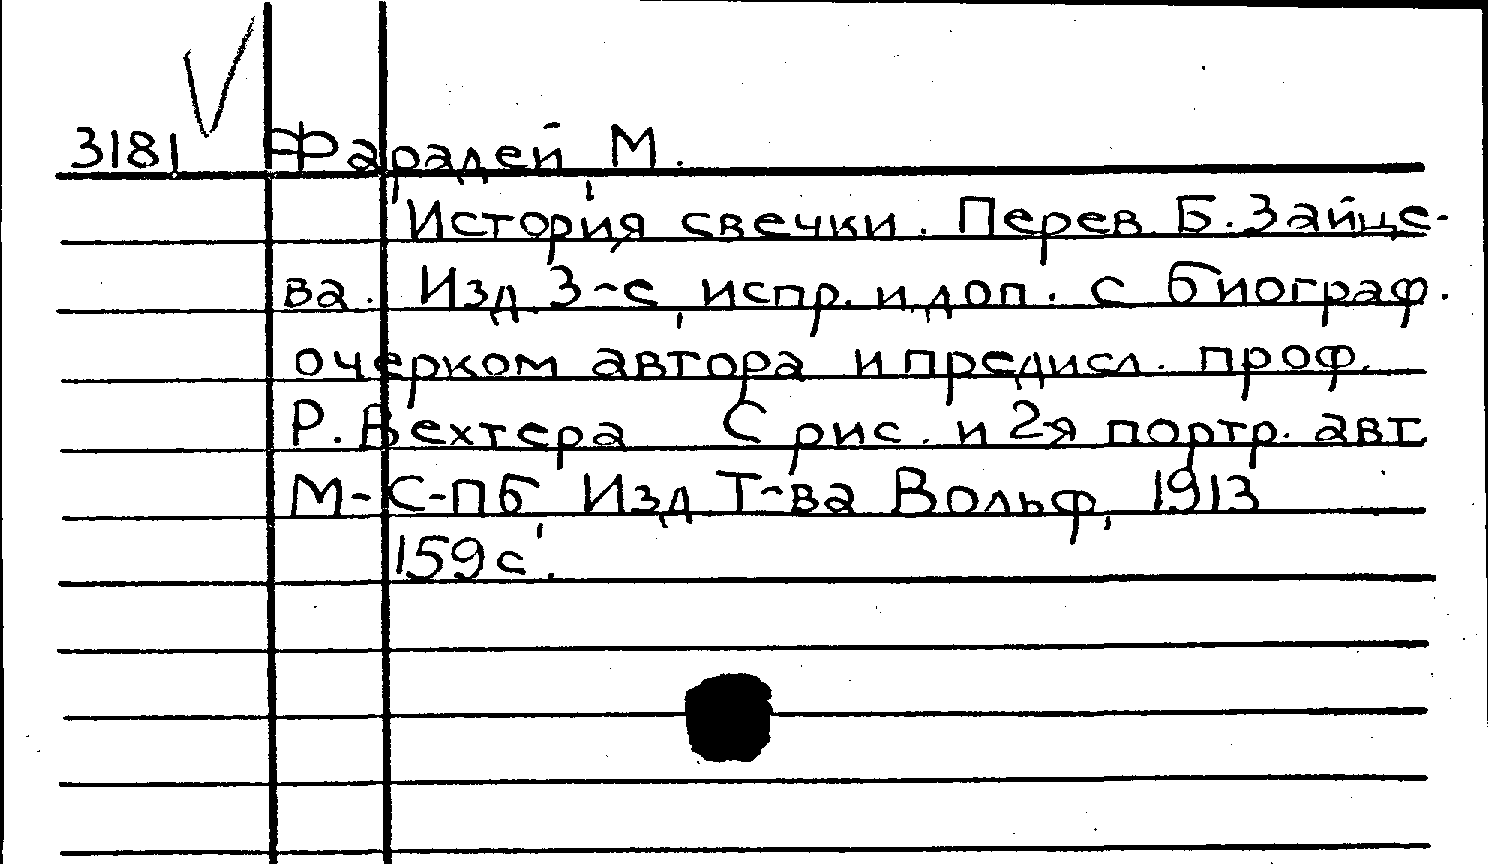 3181 Фарадей, М.
История свечки. Перев. Б. Зайце-
ва. Изд 3-е, испр. и доп. с биограф.
очерком автора и предисл. проф.
Р. Вехтера С рис. и 2я портр. авт.
М-С-Пб, Изд. Т-ва Вольф, 1913
159 с.